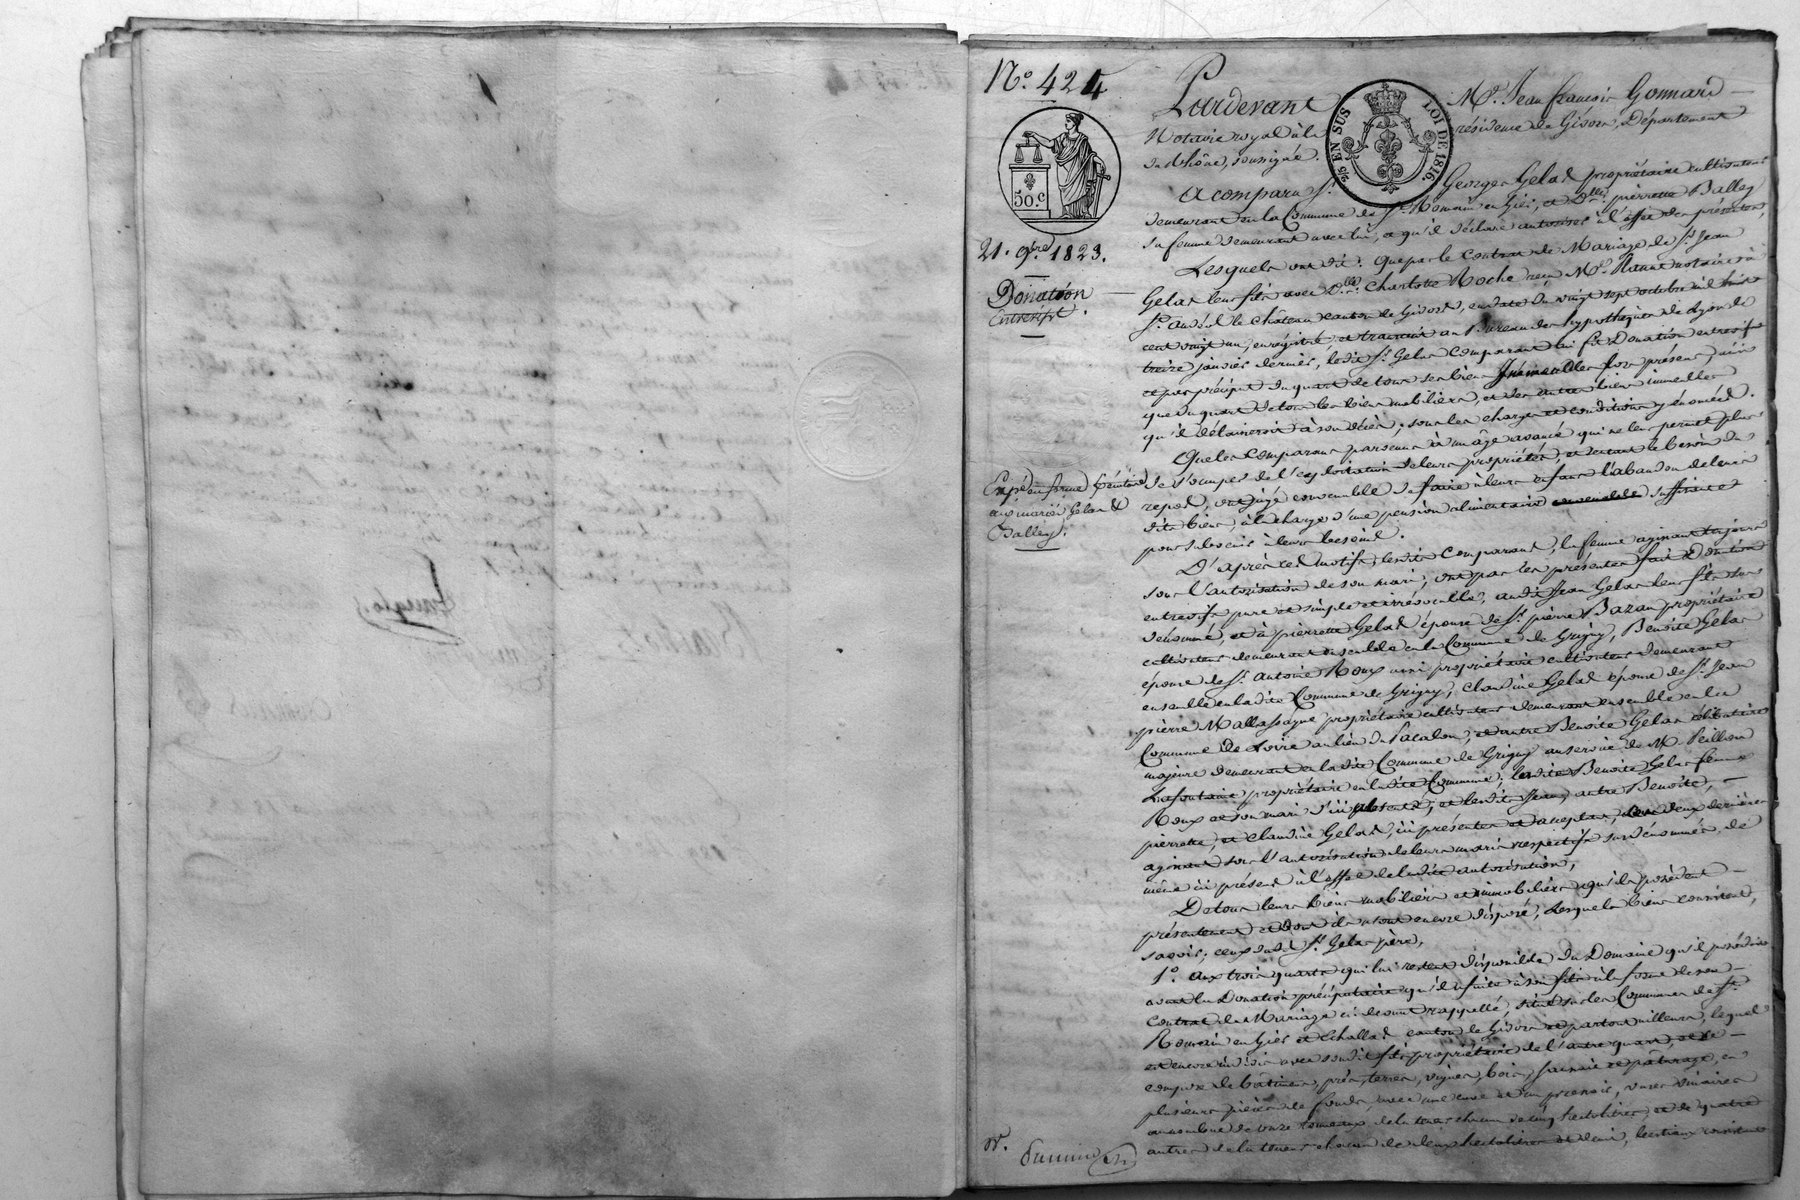 N.º 424
50.c
25 EN SUS
LOI DE 1816.
21. 9bre 1823.
Donation
Entrevifs.
Expé en forme
aux mariés Gelas &
Balley.
Pardevant Me. Jean françois Gonnard
Notaire royal à la résidence de Givors, Département
du Rhône, soussigné.
A comparu Sr. Georges Gelas propriétaire cultivateur
demeurant en la Commune de St. Romain en Giés, et Dlle. pierrette Balley
sa femme demeurant avec lui, et qu'il déclare autoriser à l'effet des présentes,
Lesquels ont dit: que par le contrat de Mariage de Sr. Jean
Gelas leur fils avec Dlle. Charlotte Roche reçu Me. notaire à
St. andéol le château canton de Givors, en date du vingt sept octobre mil huit
cent vingt un, enregistré, et transcrit au Bureau des hypothèques de Lyon le
treize janvier dernier, ledit Sr. Gelas Comparant lui fit Donation entrevifs
et par préciput du quart de tous ses biens Immeubles lors présens, ainsi
que du quart de tous les biens mobiliers, et des autres biens immeubles
qu'il délaisseroit à son décès, sous les charges et conditions y énoncées.
Que les Comparans parvenus à un âge avancé qui ne leur permet plus
de s'occuper de l'exploitation de leurs propriétés, et sentant le besoin du
repos, ont jugé convenable de faire à leurs enfans l'abandon de leurs
dits biens, à la charge d'une pension alimentaire suffisante
pour subvenir à leurs besoins.
D'après ces motifs, lesdits Comparans, la femme agissant toujours
sous l'autorisation de son mari, ont par les présentes fait Donation
entrevifs pure et simple et irrévocable, audit Jean Gelas leur fils sus
dénommé, et à pierrette Gelas épouse de Sr. pierre Bazan propriétaire
cultivateur demeurant ensemble en la Commune de Grigny, Benoite Gelas
épouse de Sr. antoine Roux aussi propriétaire cultivateur demeurant
ensemble en ladite Commune de Grigny, Claudine Gelas épouse de Sr. Jean
pierre Mallassagne propriétaire cultivateur demeurant ensemble en la
Commune de Loire au lieu du Pacalon, et autre Benoite Gelas célibataire
majeure demeurant en ladite Commune de Grigny au service de Mr. Peillon
Lafontaine propriétaire en ladite Commune; ladite Benoite Gelas femme
Roux et son mari d'ici absents, et lesdits Jean, autre Benoite,
pierrette, et claudine Gelas, ici présents et acceptans, les deux dernières
agissant sous l'autorisation de leurs maris respectifs susdénommés, de
même ici présens à l'effet de ladite autorisation,
De tous leurs biens mobiliers et immobiliers qu'ils possèdent
présentement et dont ils n'ont encore disposé, lesquels biens consistent,
savoir; ceux dudit Sr. Gelas père,
1º. aux trois quarts qui lui restent disponibles du Domaine qu'il possédoit
avant la Donation préciputaire qu'il a faite à son fils à la forme de son
contrat de Mariage ci-devant rappellé, situé sur les Communes de St.
Romain en Giés et Echallas canton de Givors et partout ailleurs, lequel
est encore indivis avec sondit fils propriétaire de l'autre quart, et se
compose de bâtimens, prés, terres, vignes, bois, et pâturage, en
plusieurs pièces de fonds, avec une cuve et un pressoir, vases vinaires
au nombre de onze tonneaux de la teneur chacun de cinq hectolitres, et de quatre
autres de la teneur chacun de deux hectolitres et demi, bestiaux